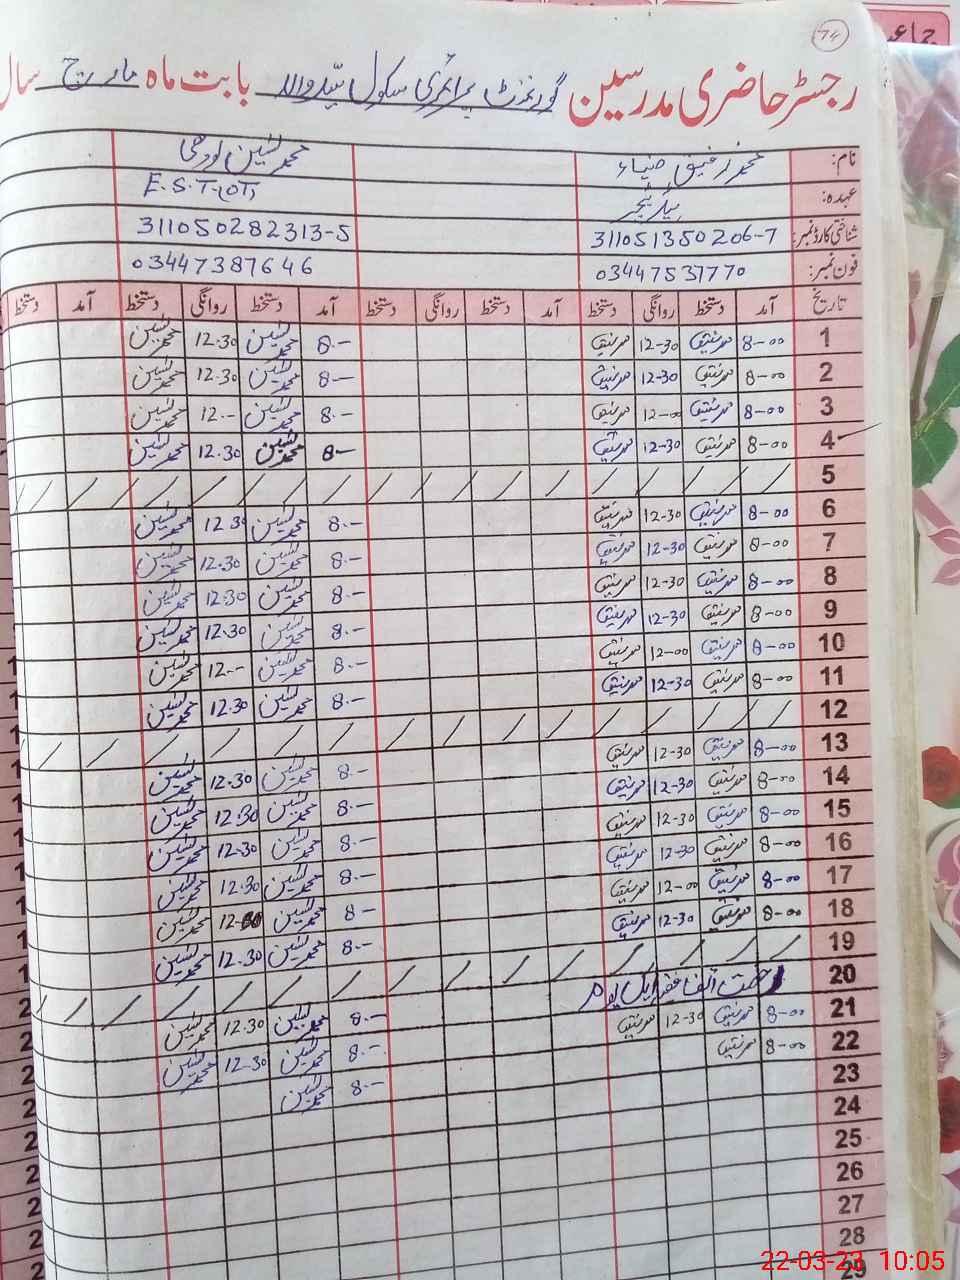 74
رجسٹر حاضری مدرسین گورنمنٹ پرائمری سکول بابت ماہ مارچ سال
نام: محمد رفیق ضیاء محمد یٰسین لودھی
عہدہ: ہیڈ ٹیچر E.S.T-(OT)
شناختی کارڈ نمبر: 311051350206-7 311050282313-5
فون نمبر: 03447531770 03447387646
تاریخ آمد دستخط روانگی دستخط آمد دستخط روانگی دستخط آمد دستخط روانگی دستخط آمد دستخط
1 8-00 محمد رفیق 12-30 محمد رفیق 8.- محمد یٰسین 12.30 محمد یٰسین
2 8-00 محمد رفیق 12-30 محمد رفیق 8- محمد یٰسین 12.30 محمد یٰسین
3 8-00 محمد رفیق 12-00 محمد رفیق 8.- محمد یٰسین 12.- محمد یٰسین
4 8-00 محمد رفیق 12-30 محمد رفیق 8- محمد یٰسین 12.30 محمد یٰسین
5
6 8-00 محمد رفیق 12-30 محمد رفیق 8.- محمد یٰسین 12.30 محمد یٰسین
7 8-00 محمد رفیق 12-30 محمد رفیق 8.- محمد یٰسین 12.30 محمد یٰسین
8 8-00 محمد رفیق 12-30 محمد رفیق 8.- محمد یٰسین 12.30 محمد یٰسین
9 8-00 محمد رفیق 12-30 محمد رفیق 8.- محمد یٰسین 12.30 محمد یٰسین
10 8-00 محمد رفیق 12-00 محمد رفیق 8.- محمد یٰسین 12.- محمد یٰسین
11 8-00 محمد رفیق 12-30 محمد رفیق 8.- محمد یٰسین 12.30 محمد یٰسین
12
13 8-00 محمد رفیق 12-30 محمد رفیق 8.- محمد یٰسین 12.30 محمد یٰسین
14 8-00 محمد رفیق 12-30 محمد رفیق 8.- محمد یٰسین 12.30 محمد یٰسین
15 8-00 محمد رفیق 12-30 محمد رفیق 8.- محمد یٰسین 12.30 محمد یٰسین
16 8-00 محمد رفیق 12-30 محمد رفیق 8.- محمد یٰسین 12.30 محمد یٰسین
17 8-00 محمد رفیق 12-00 محمد رفیق 8- محمد یٰسین محمد یٰسین
18 8-00 محمد رفیق 12-30 محمد رفیق 8- محمد یٰسین 12.30 محمد یٰسین
19
20 رخصت اتفاقیہ ایک یوم 8.- محمد یٰسین 12.30 محمد یٰسین
21 8-00 محمد رفیق 12-30 محمد رفیق 8.- محمد یٰسین 12-30 محمد یٰسین
22 8-00 محمد رفیق 8.- محمد یٰسین
23
24
25
26
27
28
29
22-03-23 10:05